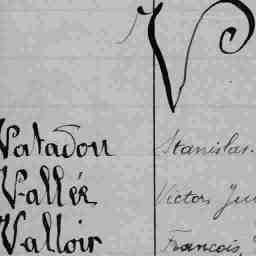 V
Vatadon Stanislas.
Vallée Victor
Valloir François,